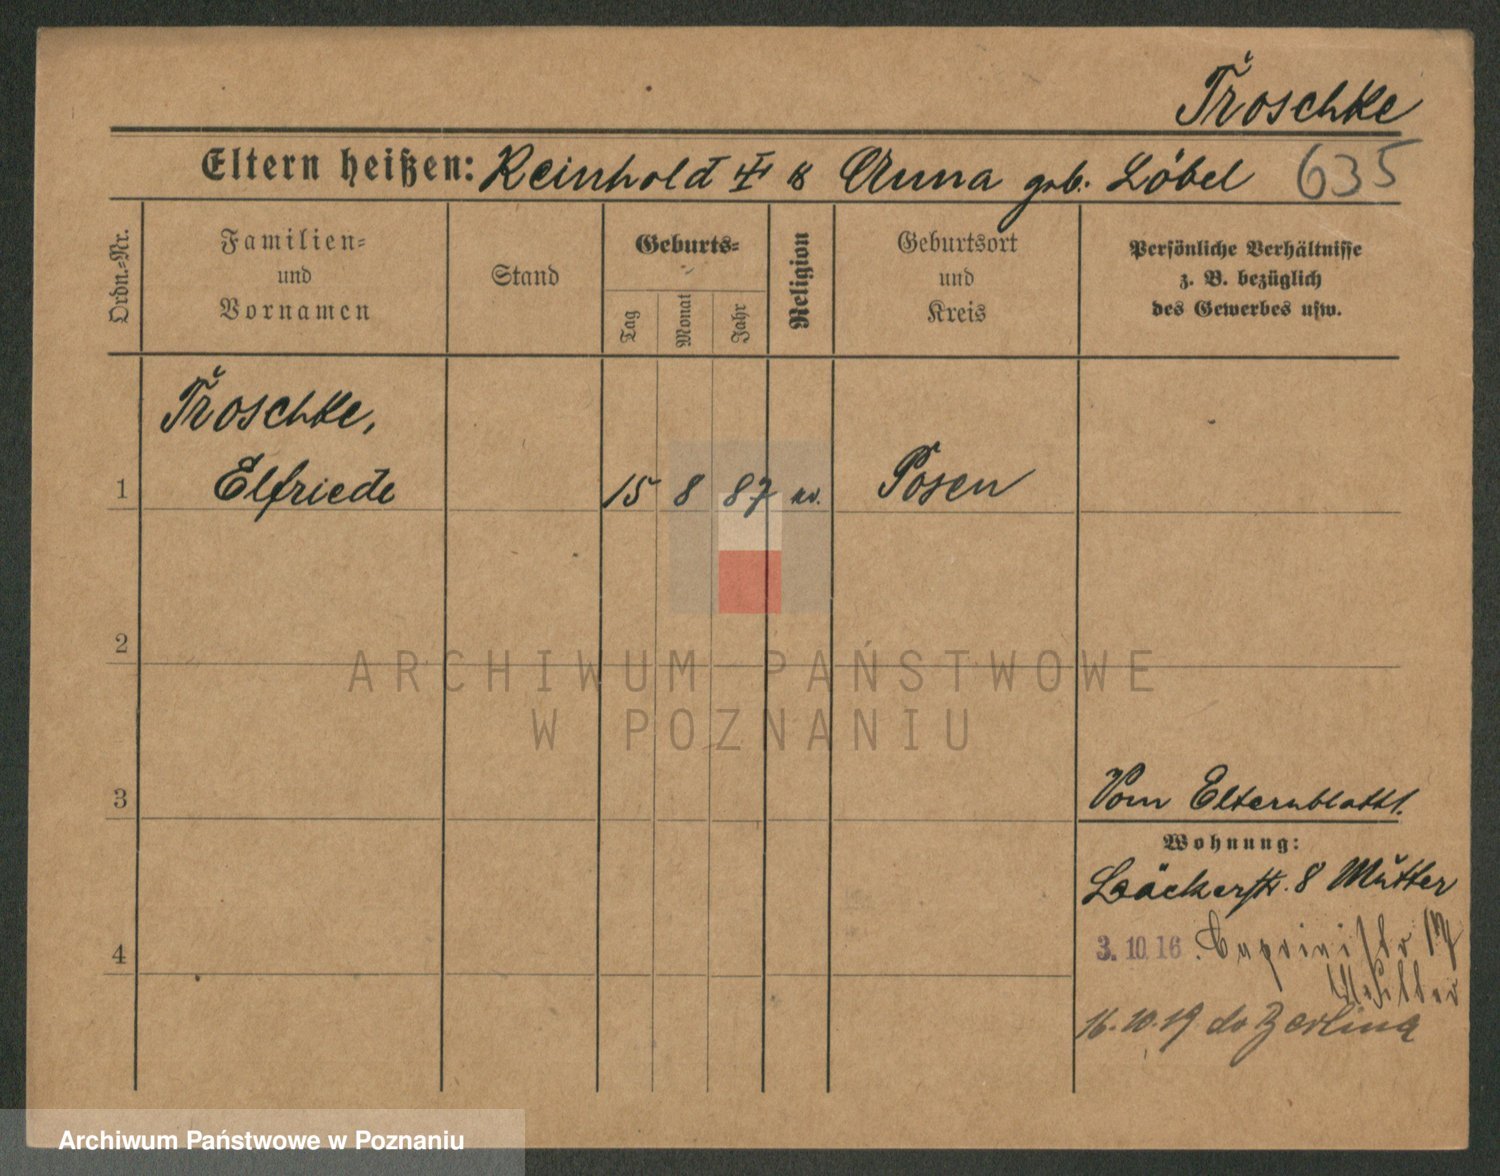 Troschke
Eltern heißen: Reinhold & Anna geb. Löbel 635
Ordn.-Nr.
Familien-
und
Vornamen
Stand
Geburts-
Tag
Monat
Jahr
Religion
Geburtsort
und
Kreis
Persönliche Verhältnisse
z. B. bezüglich
des Gewerbes usw.
Troschke,
1 Elfriede 15 8 87 ev. Posen
2
ARCHIWUM PAŃSTWOWE
W POZNANIU
3
Vom Elternblatt.
Wohnung:
8 Mutter
4
3. 10. 16. Capristr 17
16.10.19 do Berlina
Archiwum Państwowe w Poznaniu